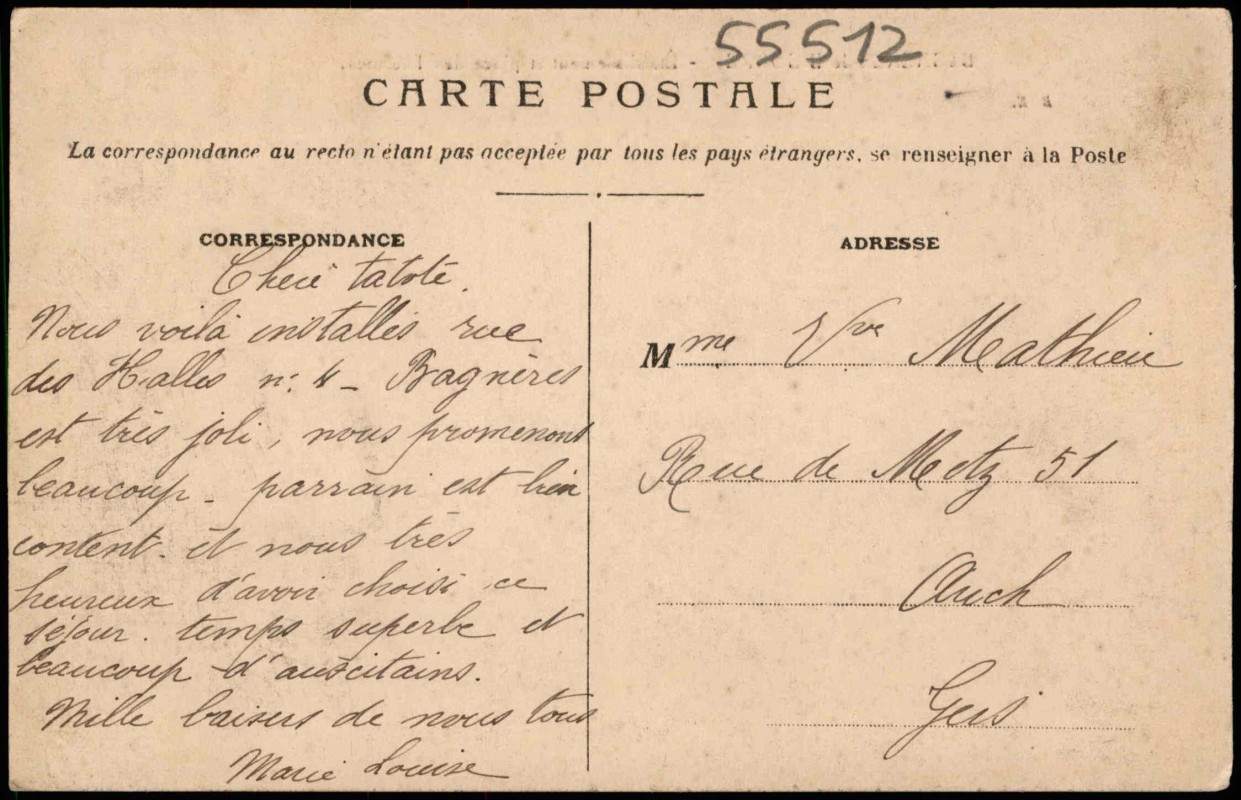 55512
CARTE POSTALE
La correspondance au recto n'étant pas acceptée par tous les pays étrangers, se renseigner à la Poste
CORRESPONDANCE
Cheré tatoté.
Nous voilà installés rue
des Halles n: 4 - Bagnères
est très joli, nous promenont
beaucoup - parrain est bien
content. et nous très
heureux d'avoir choisi ce
séjour. temps superbe et
beaucoup d'auscitains.
Mille baisers de nous tous
Marie Louise
ADRESSE
Mme Vve Mathieu
Rue de Metz 51
Auch
Gers